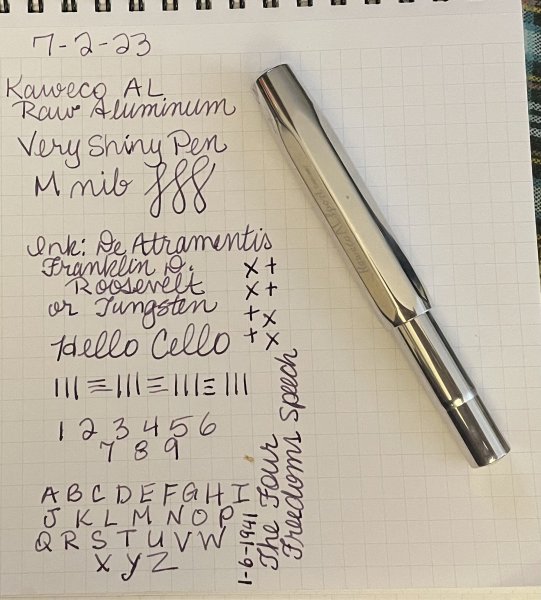 7-2-23
Kaweco AL
Raw Aluminum
Very Shiny Pen
M nib
Ink: De Atramentis
Franklin D.
Roosevelt
or Tungsten
x +
x +
+ x
+ x
Hello Cello
1 2 3 4 5 6
7 8 9
A B C D E F G H I
J K L M N O P
Q R S T U V W
X Y Z
1-6-1941
The Four
Freedoms Speech
Kaweco AL Sport